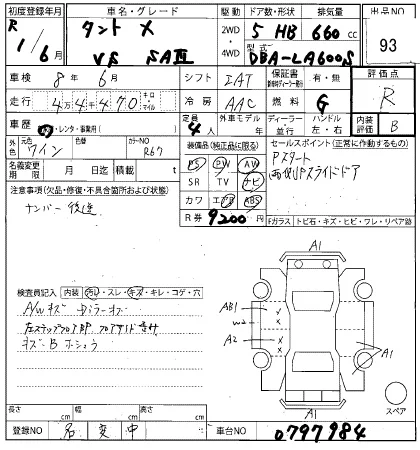 初度登録年月 車名・グレード 駆動 ドア数・形状 排気量 出品NO
R 1/6月 タント X VS SAⅢ 2WD・4WD 5 HB 660cc 93
型式 DBA-LA600S
車検 8年 6月 シフト IAT 保証書 有・無 評価点
走行 4万4千470 キロ・マイル 冷房 AAC 燃料 G R
車歴 レンタ・事業用 定員 4人 外車モデル 年 ディーラー 並行 ハンドル 左・右 内装評価 B
外色 元色 ワイン 色替 カラーNO R67
装備品(純正品に限る) セールスポイント(正常に動作するもの)
名義変更期限 月 日迄 積載 t
PS PW AW Pスタート
SR TV ナビ 両側Pスライドドア
カワ エアB ABS
R券 9200円
注意事項(欠品・修復・不具合箇所および状態)
ナンバー後送
Fガラス トビ石・キズ・ヒビ・ワレ・リペア跡
検査員記入 内装 汚レ・スレ・キズ・キレ・コゲ・穴
A/Wキズ Dミラーキズ
左ステップフロアBP フロアサイド
キズ・B ホシュウ
A1
AB1
W2
A2
A1
A1
スペア
長さ cm 幅 cm 高さ cm
登録NO 名変中 車台NO 0797984